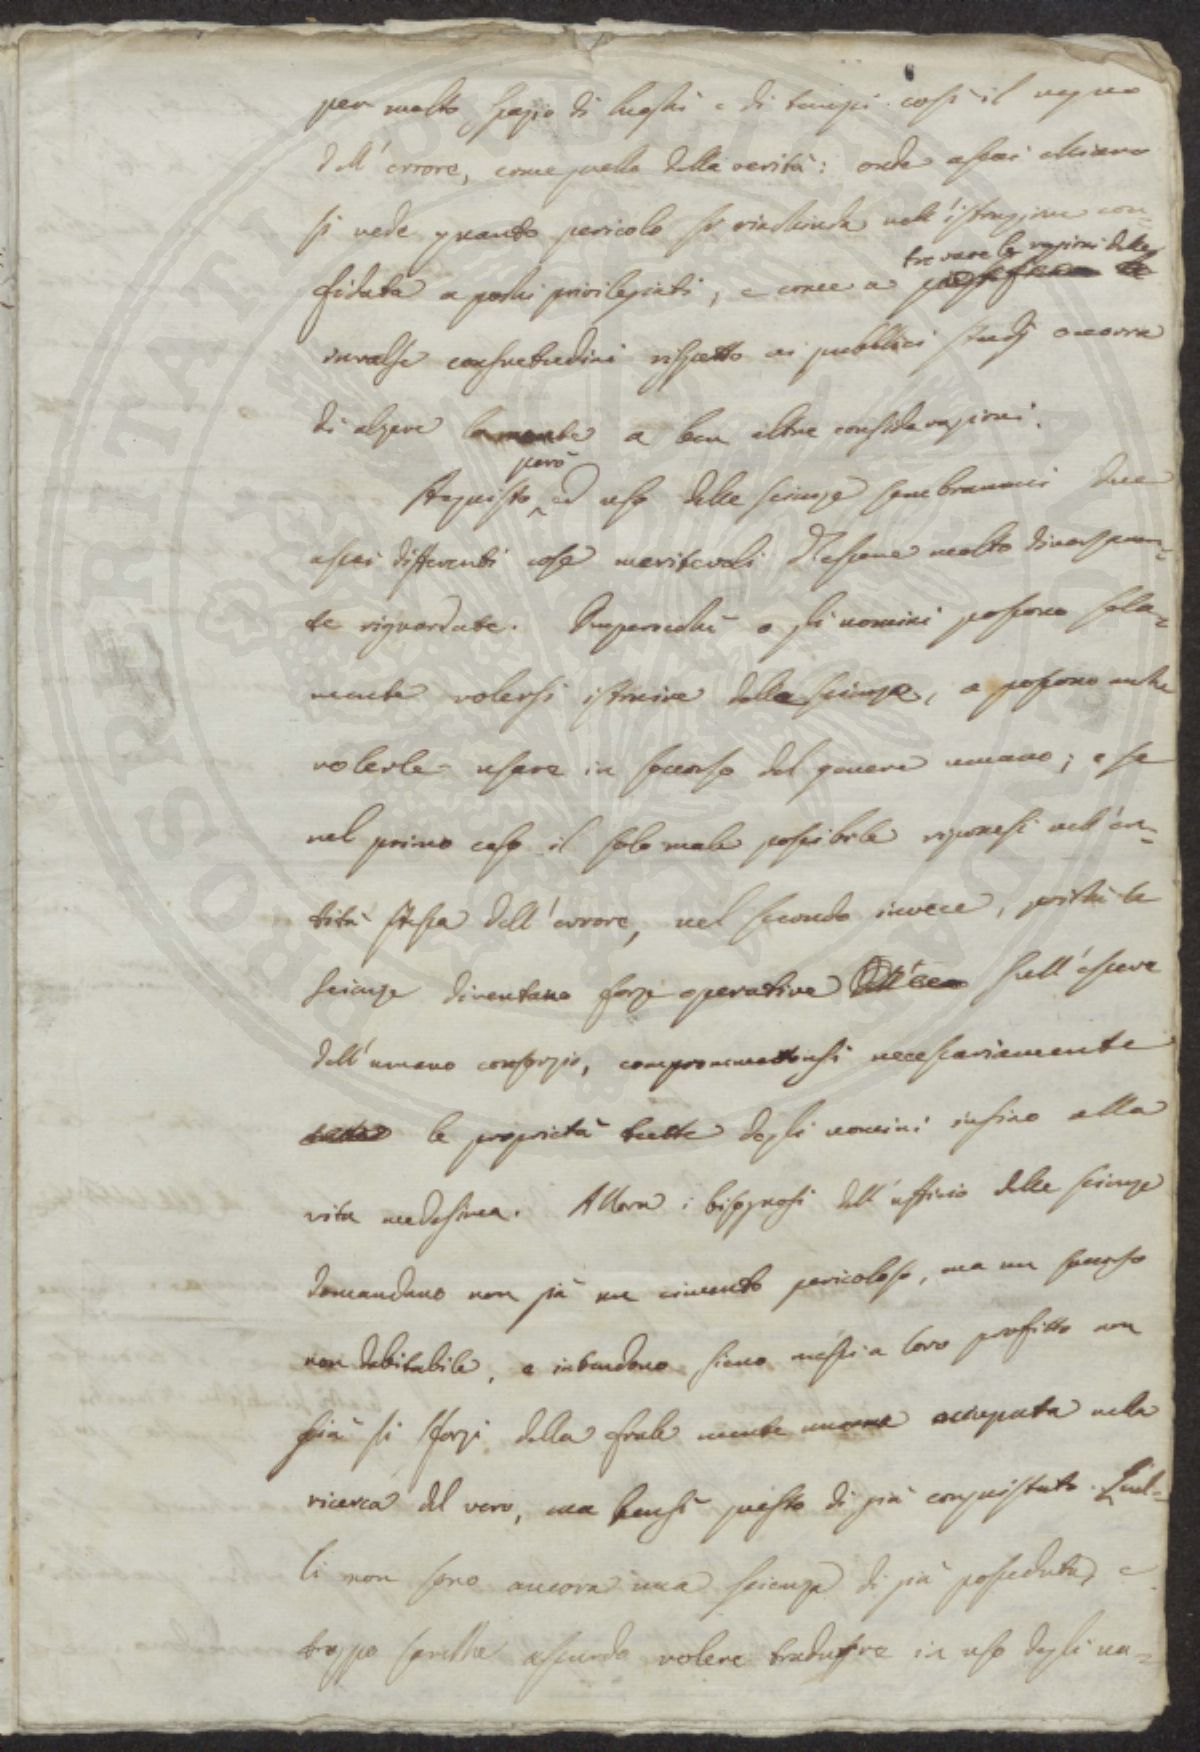 per molto spazio di luoghi e di tempi così il regno
dell'errore, come quello della verità: onde assai chiaro
si vede quanto pericolo si rinchiuda nell'istruzione con=
trovare le ragioni delle
fidata a pochi privilegiati, e come a
invalse consuetudini rispetto ai pubblici studj occorra
di alzare la mente a ben altre considerazioni.
però
Acquisto ed uso delle scienze sembrannoci due
assai differenti cose meritevoli d'essere molto diversamen=
te riguardate. Imperocchè o gli uomini possono sola=
mente volersi istruire della scienza, o possono anche
volerle usare in soccorso del genere umano; e se
nel primo caso il solo male possibile riponesi nell'en=
tità stessa dell'errore, nel secondo invece, poichè le
scienze diventano forze operative sull'essere
dell'umano consorzio, compromettonsi necessariamente
le proprietà tutte degli uomini insino alla
vita medesima. Allora i bisognosi dell'ufficio delle scienze
domandano non già un cimento pericoloso, ma un soccorso
non dubitabile, e intendono sieno messi a loro profitto non
già gli sforzi della frale mente umana occupata nella
ricerca del vero, ma bensì questo di già conquistato. Quel=
li non sono ancora una scienza di già posseduta, e
troppo sarebbe assurdo volere tradurre in uso degli uo=